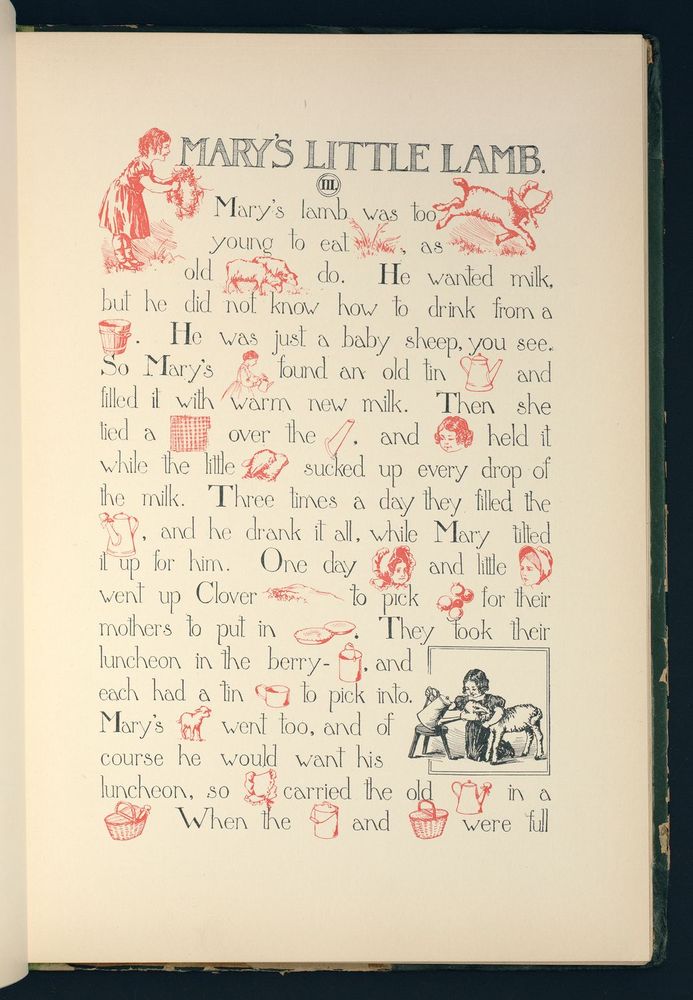 MARY'S LITTLE LAMB.
III.
Mary's lamb was too
young to eat , as
old do. He wanted milk,
but he did not know how to drink from a
. He was just a baby sheep, you see.
So Mary's found an old tin and
filled it with warm new milk. Then she
tied a over the , and held it
while the little sucked up every drop of
the milk. Three times a day they filled the
, and he drank it all, while Mary tilted
it up for him. One day and little
went up Clover to pick for their
mothers to put in . They took their
luncheon in the berry- , and
each had a tin to pick into.
Mary's went too, and of
course he would want his
luncheon, so carried the old in a
When the and were full